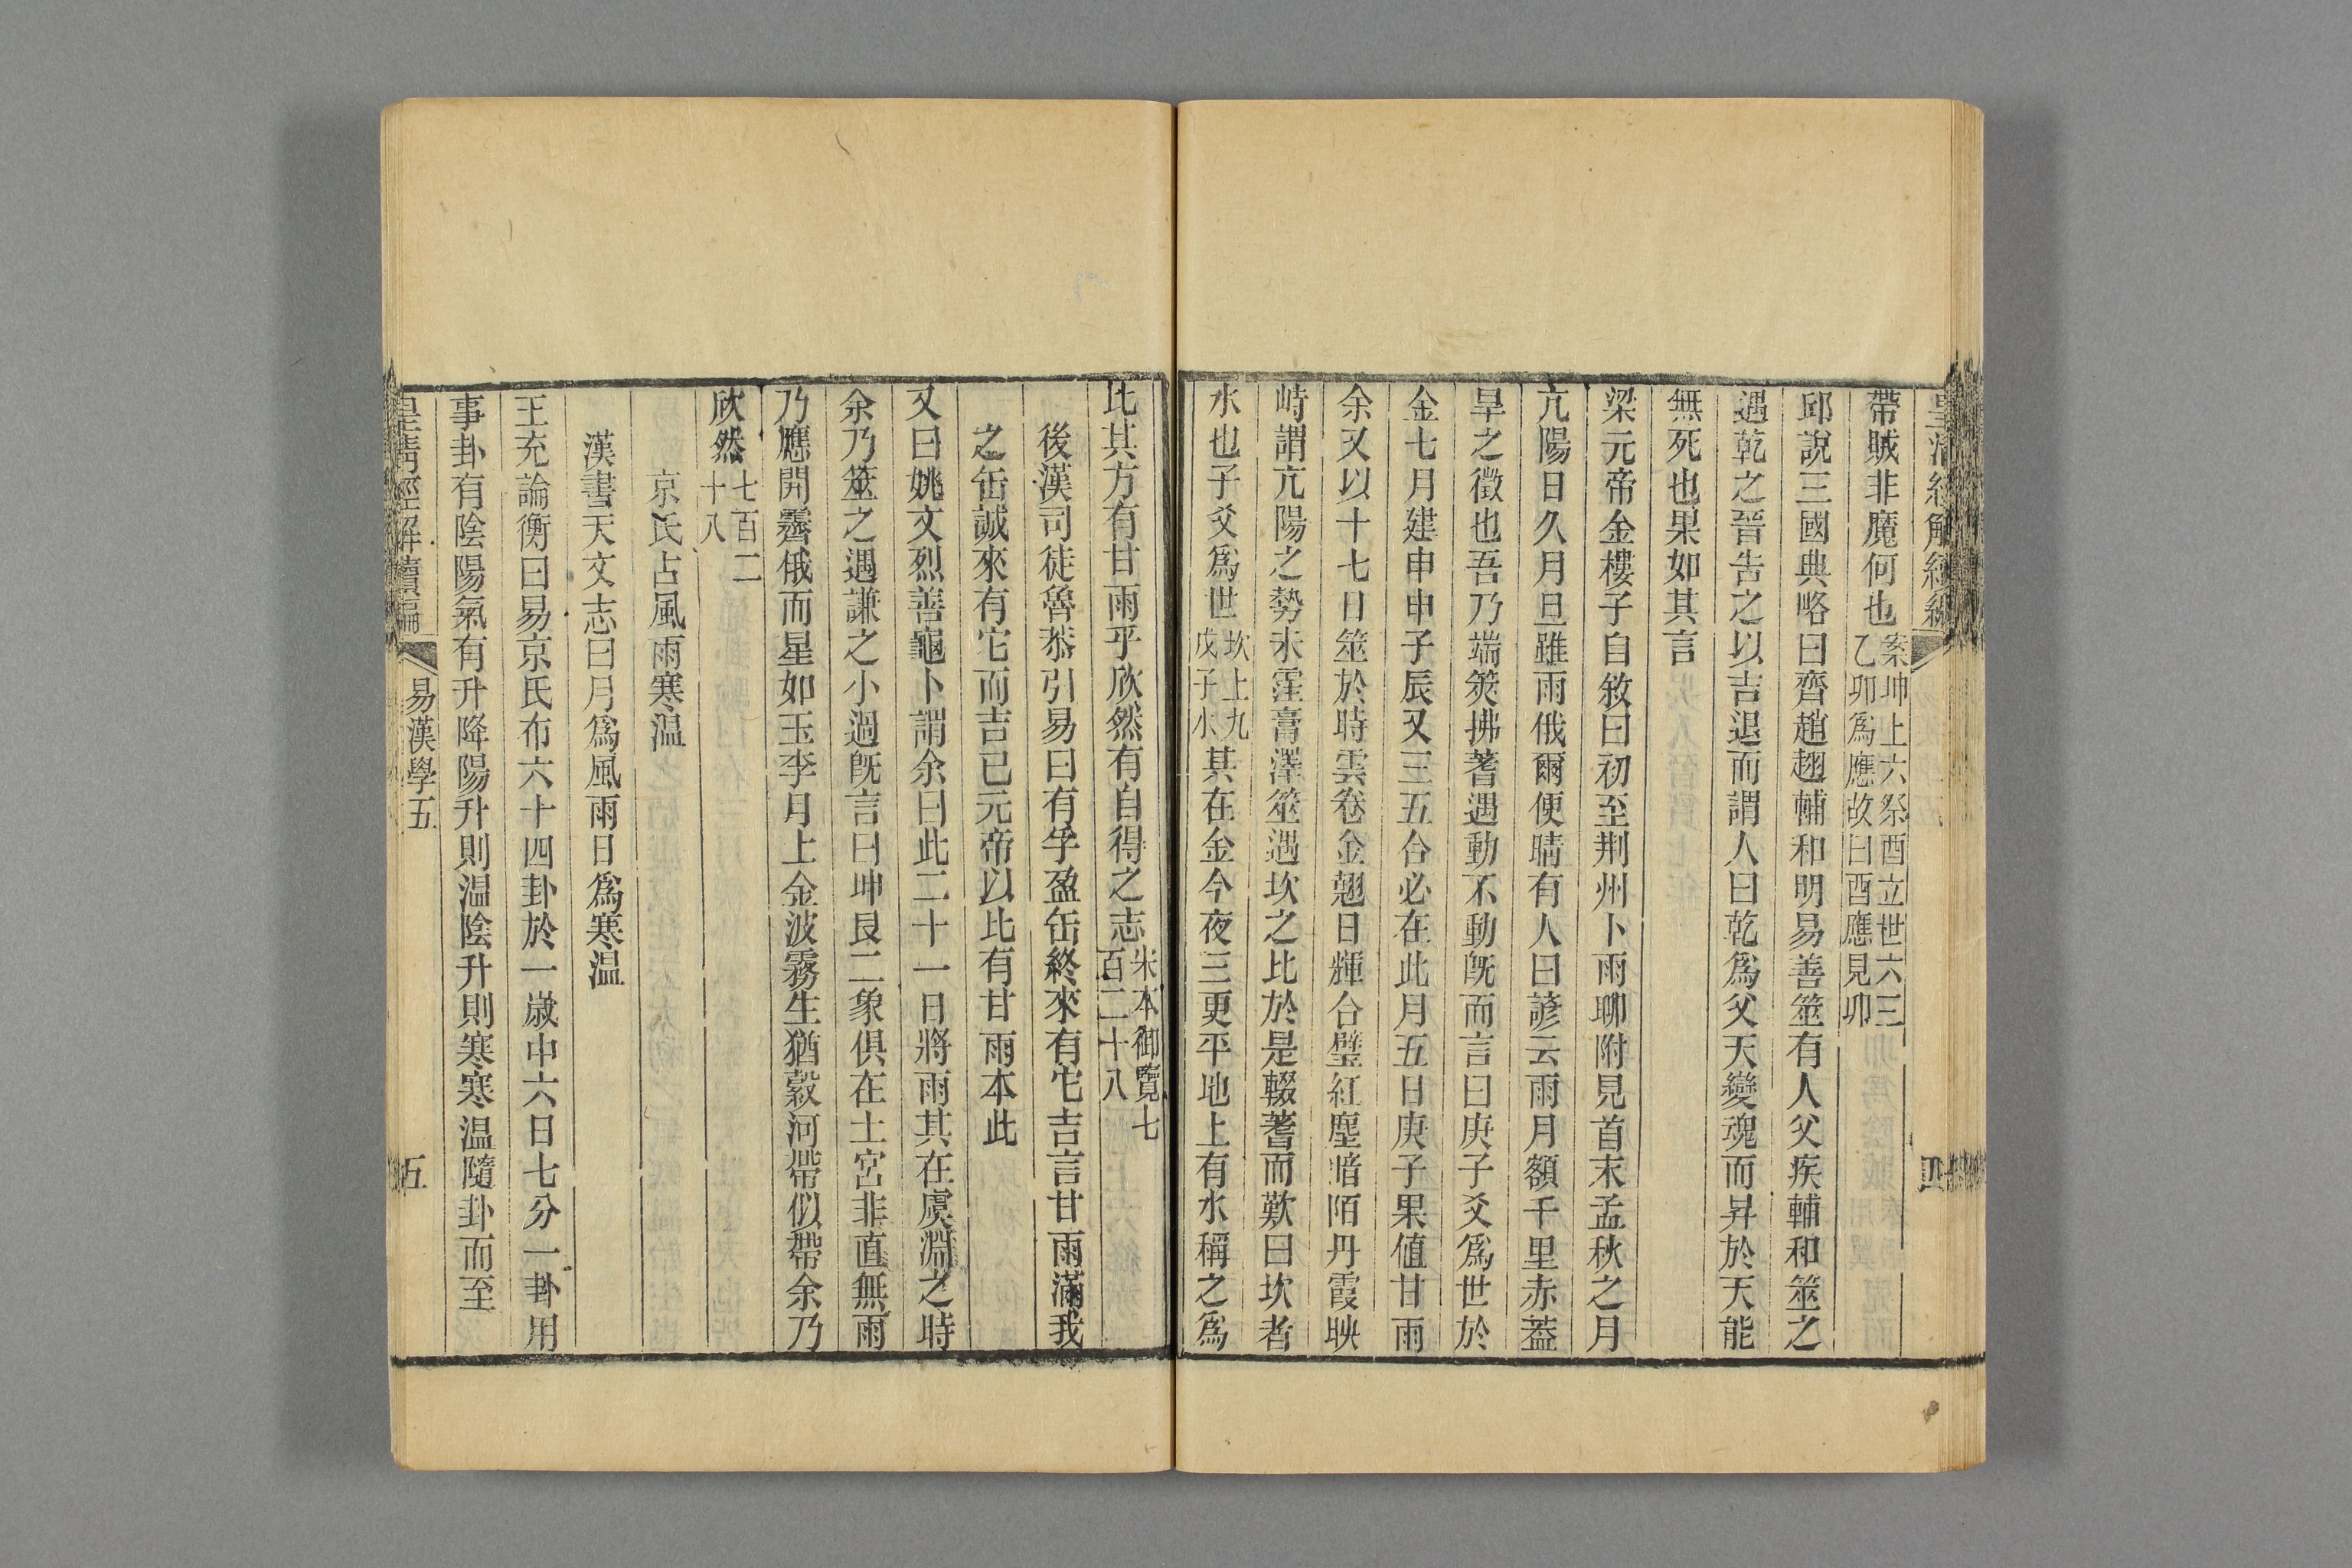 皇清經解續編
四
帶賊非魔何也案坤上六癸酉立世六三乙卯爲應故曰酉應見卯
邱說三國典略曰齊趙翅輔和明易善筮有人父疾輔和筮之
遇乾之晉告之以吉退而謂人曰乾爲父天變魂而昇於天能
無死也果如其言
梁元帝金樓子自敘曰初至荆州卜雨聊附見首末孟秋之月
亢陽日久月旦雖雨俄爾便晴有人曰諺云雨月額千里赤蓋
旱之徵也吾乃端筴拂蓍遇動不動旣而言曰庚子爻爲世於
金七月建申申子辰又三五合必在此月五日庚子果値甘雨
余又以十七日筮於時雲卷金翹日輝合璧紅塵暗陌丹霞映
峙謂亢陽之勢未霪膏澤筮遇坎之比於是輟蓍而歎曰坎者
水也子爻爲世坎上九戊子水其在金今夜三更平地上有水稱之爲
比其方有甘雨乎欣然有自得之志宋本御覽七百二十八
後漢司徒魯恭引易曰有孚盈缶終來有它吉言甘雨滿我
之缶誠來有它而吉已元帝以比有甘雨本此
又曰姚文烈善龜卜謂余曰此二十一日將雨其在虞淵之時
余乃筮之遇謙之小過旣言曰坤艮二象俱在土宮非直無雨
乃應開霽俄而星如玉李月上金波霧生猶縠河帶似帶余乃
欣然七百二十八
京氏占風雨寒温
漢書天文志曰月爲風雨日爲寒温
王充論衡曰易京氏布六十四卦於一歲中六日七分一卦用
事卦有陰陽氣有升降陽升則温陰升則寒寒温隨卦而至
皇清經解續編
易漢學五
五